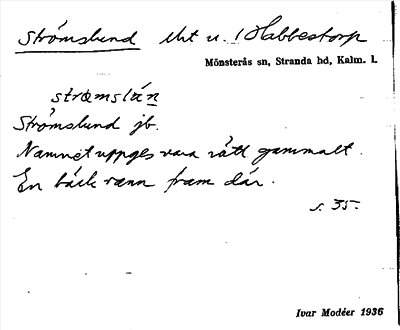 Strömslund lht u. 1 Habbestorp
Mönsterås sn, Stranda hd, Kalm. l.
strømslán
Strömslund jb.
Namnet uppges vara rätt gammalt.
En bäck rann fram där.
s. 35.
Ivar Modéer 1936